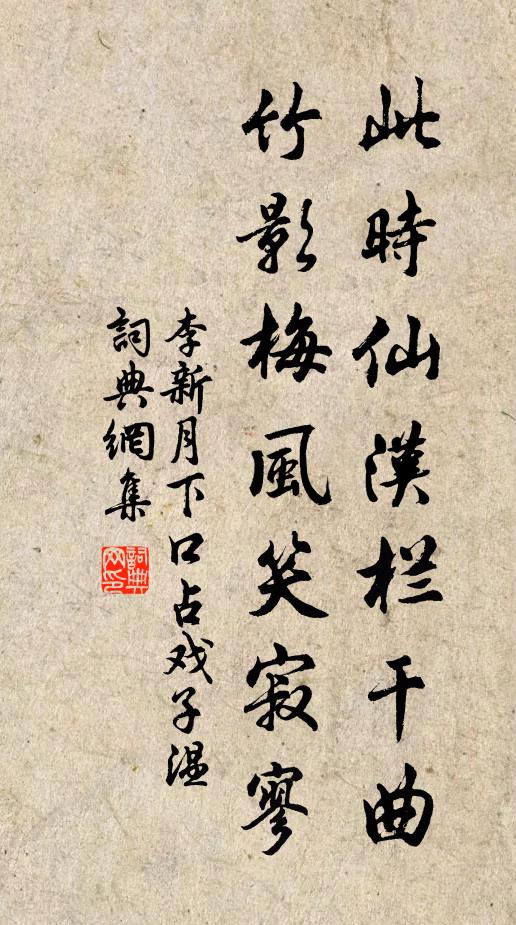 此時仙漢栏干曲
竹影梅風笑寂寥
李新月下口占戏子温
詞典網集
詞典網印